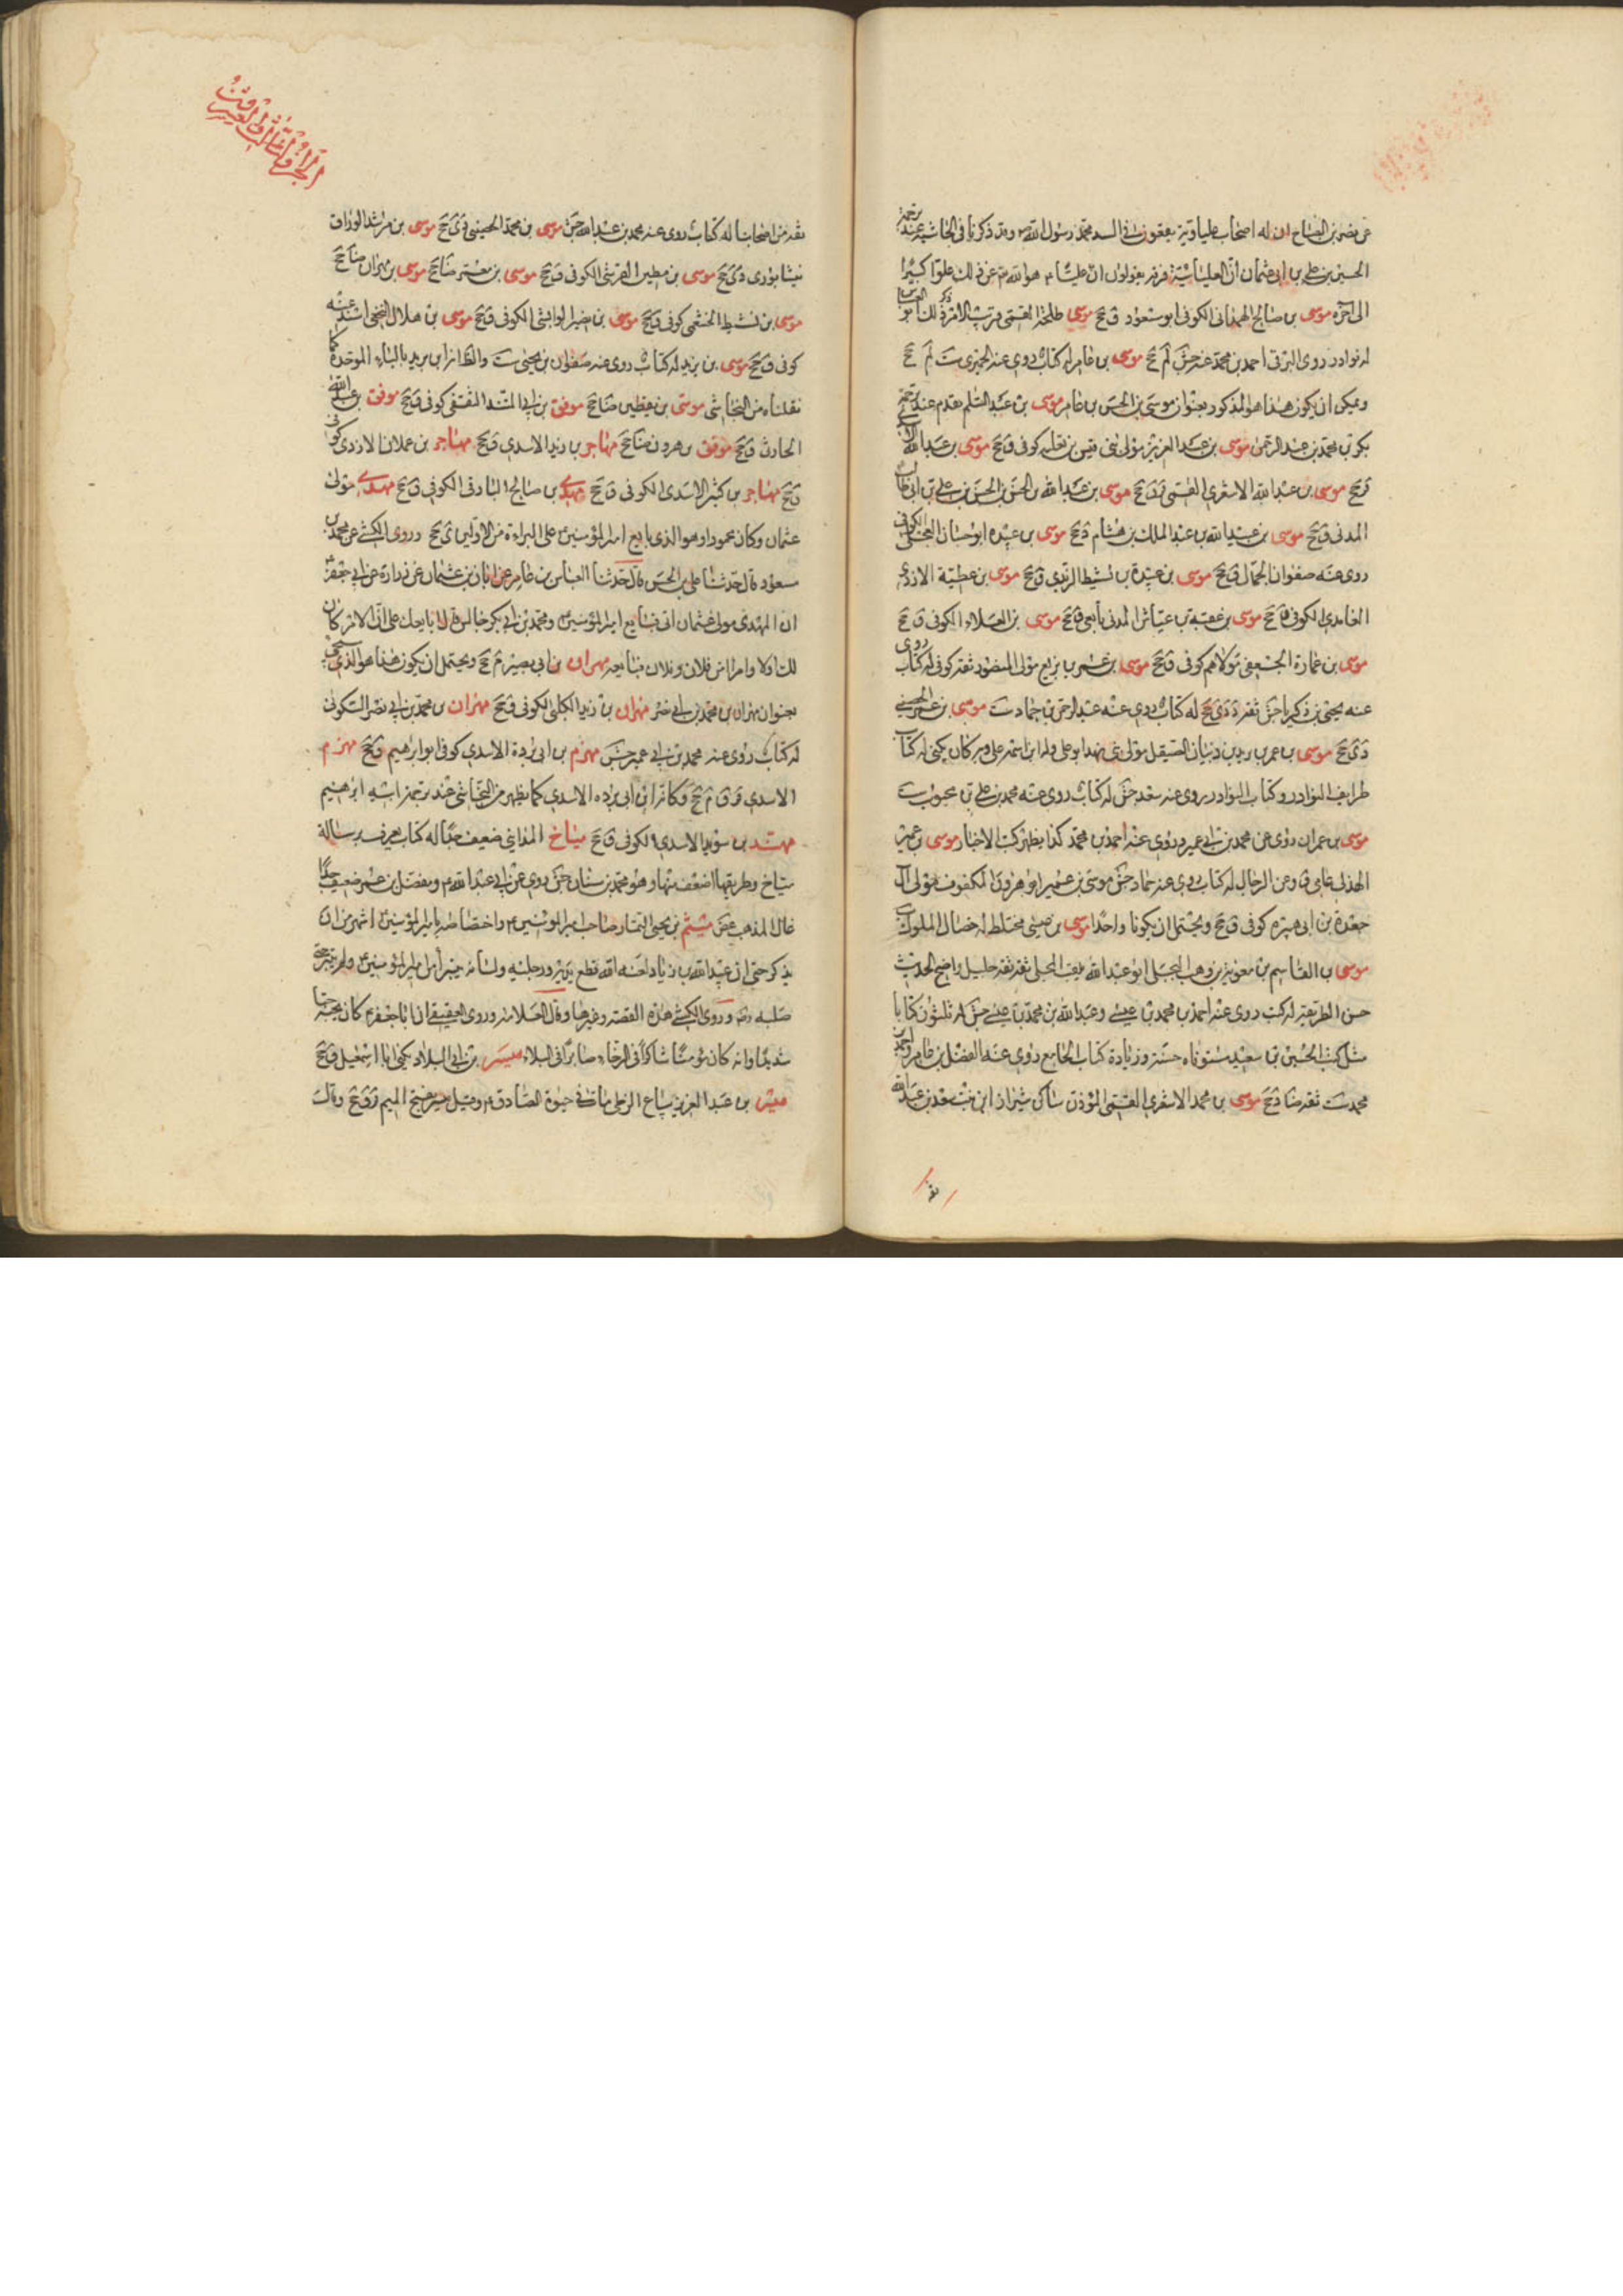 عن نصر بن الصباح ان له اصحاب علياوية يعقون في السيد محمد رسول الله ص وقد ذكرنا في الحاشية عند ترجمة
الحسن بن علي بن ابي عثمان ان العليائية فرقة يقولون ان عليا ع هو الله عز ذلك علوا كبيرا
الى آخره موسى بن صالح الهمداني الكوفي ابو مسعود ق جخ موسى طلحة القمي قريب الامر ذكر ذلك ابو العباس
له نوادر روى البرقي احمد بن محمد عنه جش لم جخ موسى بن عامر له كتاب روى عنه الحميري ست لم جخ
ويمكن ان يكون هذا هو المذكور بعنوان موسى بن الحسن بن عامر موسى بن عبد السلم تقدم عند ترجمة
بكر بن محمد بن عبد الرحمن موسى بن عبد العزيز مولى بني قيس بن ثعلبه كوفي ق جخ موسى بن عبد الله
ق جخ موسى بن عبد الله الاشعري القمي ق جخ موسى بن عبد الله بن الحسن بن الحسن بن علي بن ابي طالب
المدني ق جخ موسى بن عبد الله بن عبد الملك بن هشام د جخ موسى بن عبيده ابو حسان العجلي الكوفي
روى عنه صفوان الجمال ق جخ موسى بن عبيدة بن نشيط الربذي ق جخ موسى بن عطية الازدي
الغامدي الكوفي ق جخ موسى بن عقبة بن عياش المدني تابعي ق جخ موسى بن العلاء الكوفي ق جخ
موسى بن عمارة الجعفي مولاهم كوفي ق جخ موسى بن عمر بن بزيع مولى المنصور ثقة كوفي له كتاب روى
عنه يحيى بن زكريا جش ثقة د دي جخ له كتاب روى عنه عبد الرحمن بن حماد ست موسى بن عمر الحضيني
دي جخ موسى بن عمر بن يزيد بن ذبيان الصيقل مولى بني نهد ابو علي وله ابن اسمه علي وبه كان يكنى له كتاب
طرايف النوادر وكتاب النوادر روى عنه سعد جش له كتاب روى عنه محمد بن علي بن محبوب ست
موسى بن عمران روى عن محمد بن ابي عمير وروى عنه احمد بن محمد كذا يظهر كتب الاخبار موسى بن عمير
الهذلي عامي ق وعن الرجال له كتاب روى عنه حماد جش موسى بن عمير ابو هرون المكفوف مولى آل
جعدة بن ابي هبيرة كوفي ق جخ ويحتمل ان يكونا واحدا موسى بن عيسى مختلط له خصال الملوك
موسى بن القاسم بن معوية بن وهب البجلي ابو عبد الله يلقب المجلي ثقة ثقة جليل واضح الحديث
حسن الطريقة له كتب روى عنه احمد بن محمد بن عيسى وعبد الله بن محمد بن عيسى جش له ثلثون كتابا
مثل كتب الحسين بن سعيد مستوفاه حسنة وزيادة كتاب الجامع روى عنه الفضل بن عامر واحمد بن
محمد ست ثقة ضا د جخ موسى بن محمد الاشعري القمي المؤدب ساكن شيراز ابن بنت سعد بن عبد الله
ثقة
ثقة من اصحابنا له كتاب روى عنه محمد بن عبد الله جش موسى بن محمد الحصيني دي جخ موسى بن مرشد الوراق
نيشابوري دي جخ موسى بن مطير القرشي الكوفي ق جخ موسى بن معمر ضا جخ موسى بن مهران ضا جخ
موسى بن نشيط الخثعمي كوفي ق جخ موسى بن الوابشي الكوفي ق جخ موسى بن هلال النخعي اسند عنه
كوفي ق جخ موسى بن يزيد له كتاب روى عنه صفوان بن يحيى ست والظاهر انه ابن بريد بالباء الموحدة كما
نقلناه من النجاشي موسى بن يقطين ضا جخ موفق بن ابي المتئد الثقفي كوفي ق جخ موفق بن عبد الله
الحارث ق جخ موفق بن هرون ضا جخ مهاجر بن زيد الاسدي ق جخ مهاجر بن عملان الازدي كوفي
ق جخ مهاجر بن كثير الاسدي الكوفي ق جخ مهدي بن صالح البارقي الكوفي ق جخ مهدي مولى
عثمان وكان محمودا وهو الذي بايع امير المؤمنين ع على البراءة من الاولين ي جخ وروى الكشي عن محمد بن
مسعود قال حدثنا علي بن الحسن قال حدثنا العباس بن عامر عن ابان بن عثمان عن زرارة عن ابي جعفر ع
ان المهدي مولى عثمان اتى فبايع امير المؤمنين ع ومحمد بن ابي بكر جالس قال ابايعك على ان الامر كان
لك اولا وابرأ من فلان وفلان فبايعه مهران بن ابي بصير لم جخ ويحتمل ان يكون هذا هو الذي سيجيء
بعنوان مهران بن محمد بن ابي نصر مهران بن زيد الكلبي الكوفي ق جخ مهران بن محمد بن ابي نصر السكوني
له كتاب روى عنه محمد بن ابي عمير جش مهزم بن ابي بردة الاسدي كوفي ابو ابراهيم ق جخ مهزم
الاسدي قر ق م جخ وكانه ابن ابي برده الاسدي كما يظهر من النجاشي عند ترجمة ابنه ابرهيم
مهند بن سويد الاسدي الكوفي ق جخ مياح المدايني ضعيف جدا له كتاب يعرف برسالة
مياح وطريقها اضعف منها وهو محمد بن سنان جش روى عن ابي عبد الله ع ومفضل بن عمر ضعيف جدا
غال المذهب غض ميثم بن يحيى التمار صاحب امير المؤمنين ع واختصاصه بامير المؤمنين ع اشهر من ان
يذكر حتى ان عبيد الله بن زياد لعنه الله قطع يديه ورجليه ولسانه حين ابى ان يتبرأ من امير المؤمنين ع
صلبه وروى الكشي هذه القصة وغيرها وقال العلامة وروى العقيقي ان ابا جعفر ع كان يحبه حبا
شديدا وانه كان مؤمنا شاكرا في الرخاء صابرا في البلاء ميسر بن ابي البلاد يكنى ابا اسمعيل ق جخ
ميسر بن عبد العزيز بياع الزطي مات في حيوة الصادق ع وقيل ميسر بفتح الميم ق ق جخ وقال